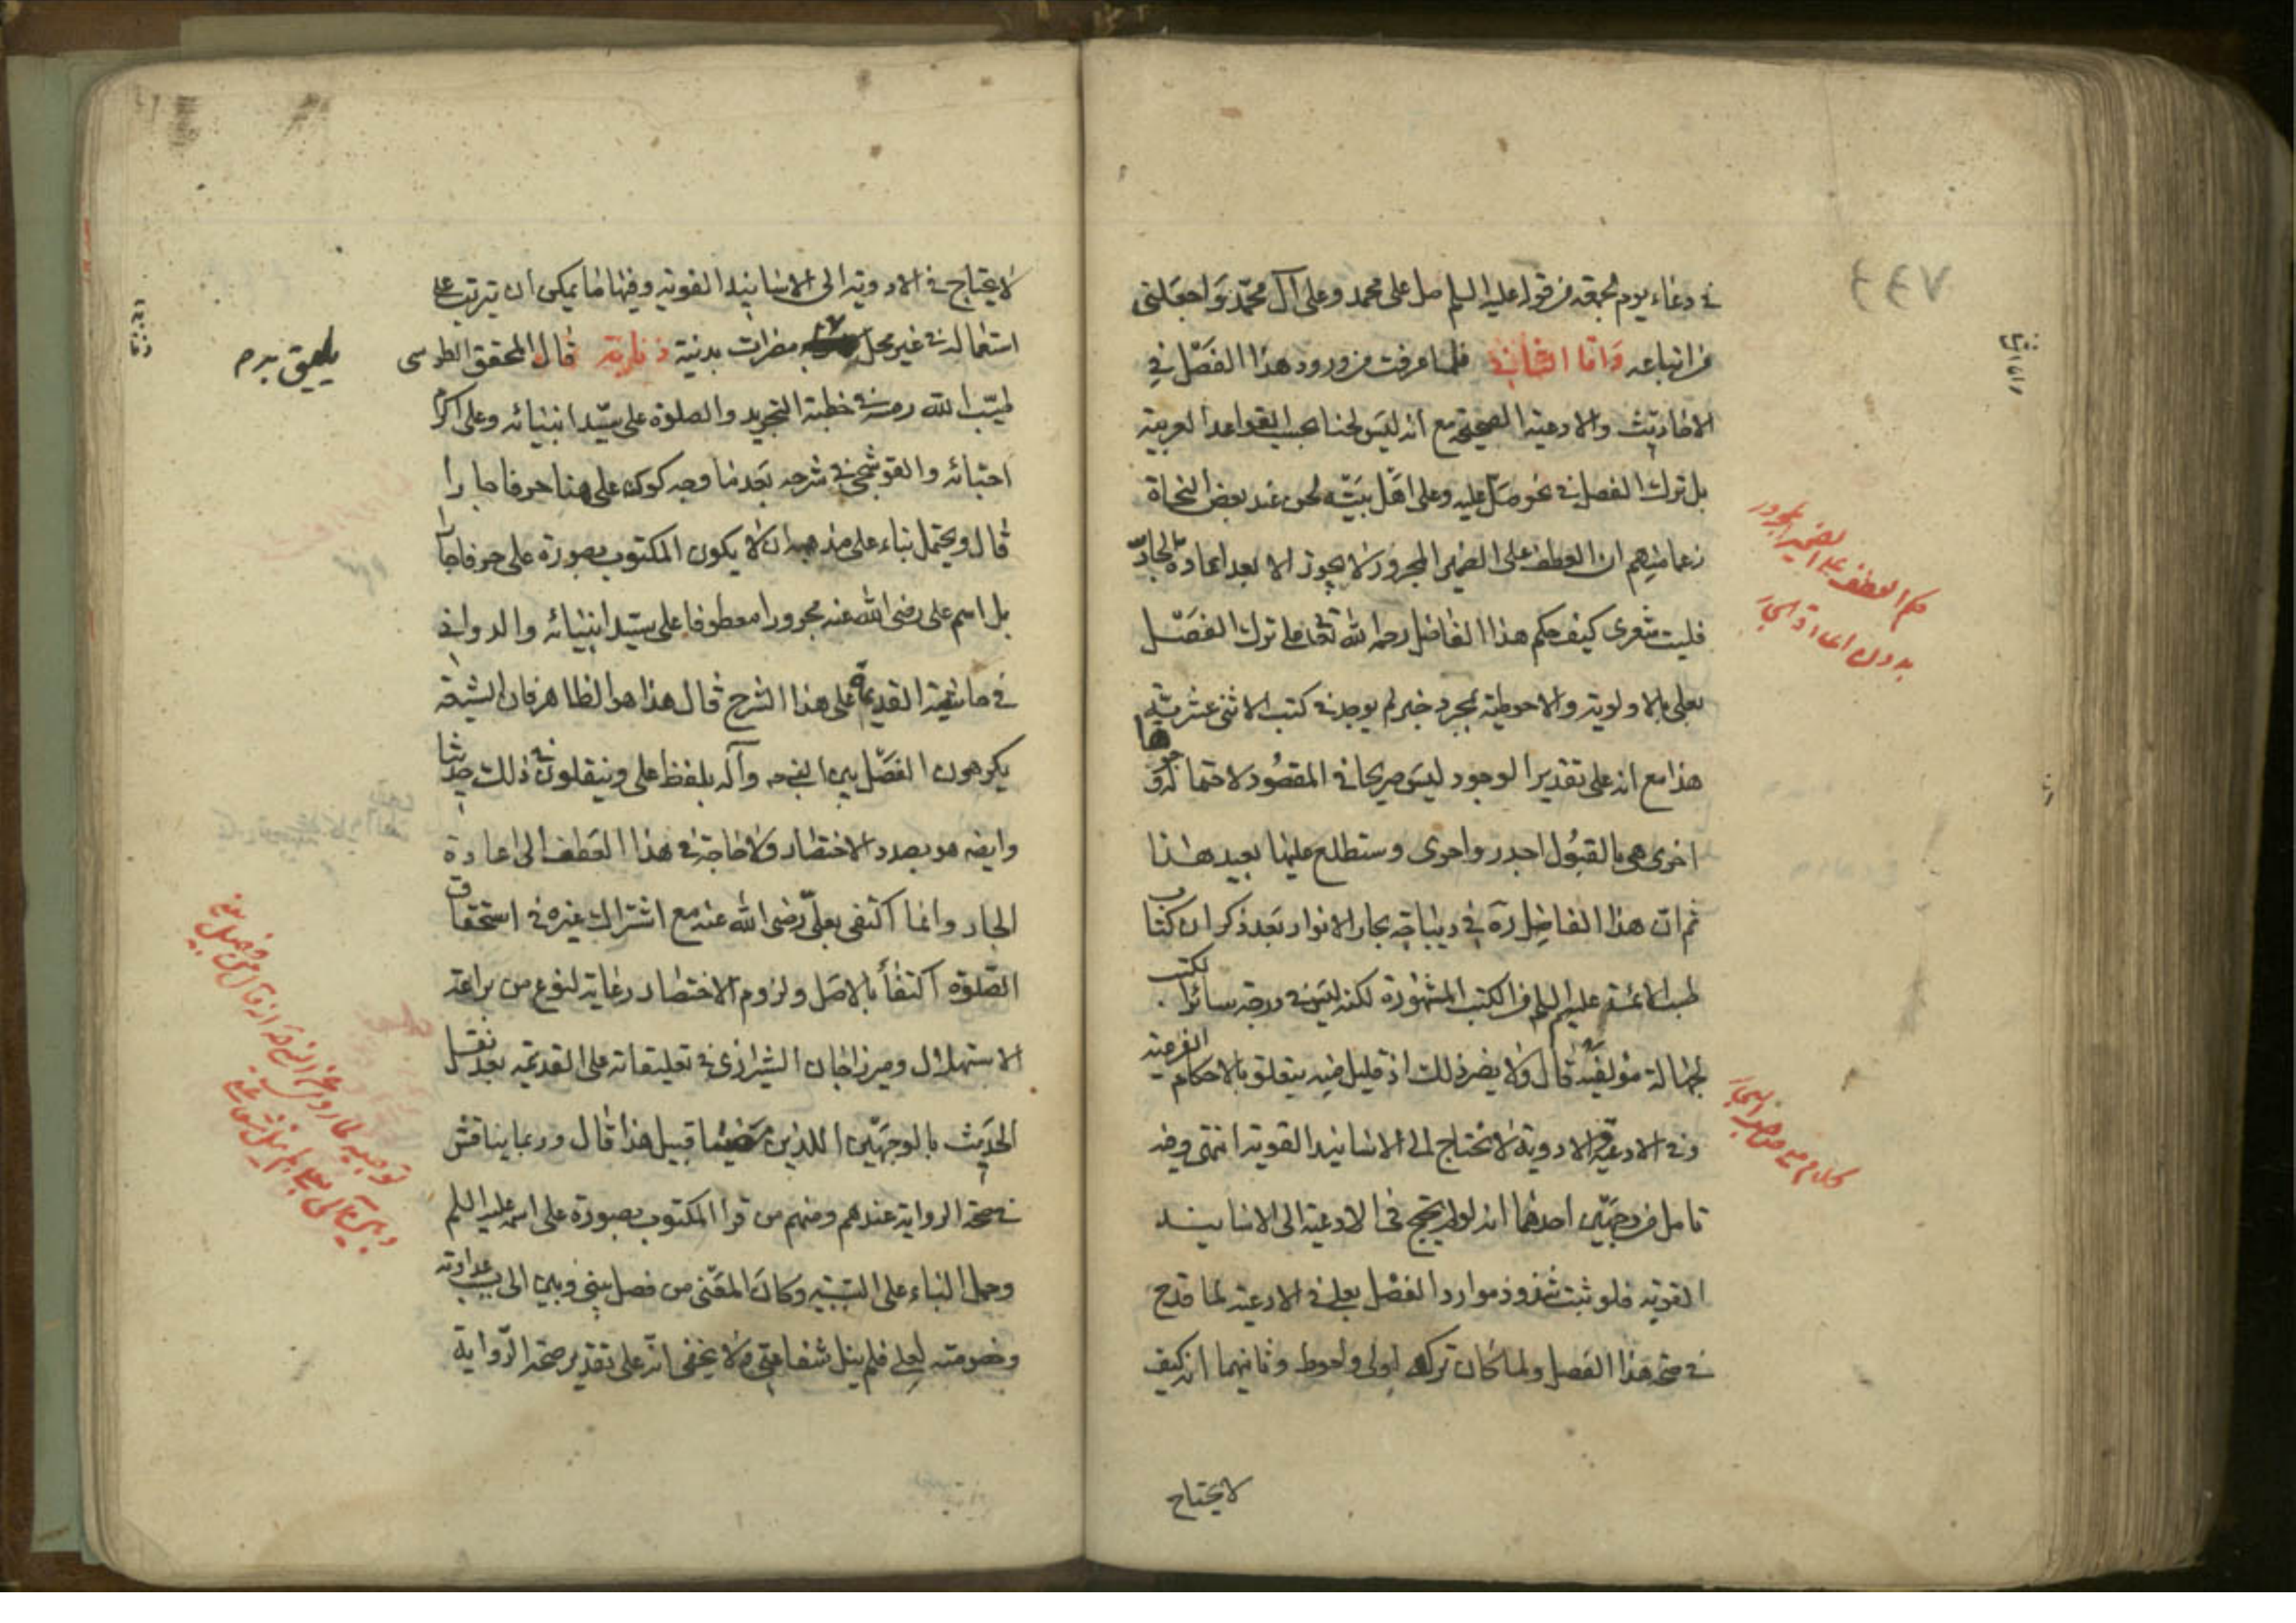 في دعاء يوم الجمعة من قوله عليه السلم صل على محمد وعلى آل محمد واجعلني
من اتباعه واما الثاني فلما عرفت من ورود هذا الفصل في
الاحاديث والادعية الصحيحة مع انه ليس لحنا بحسب القواعد العربية
بل ترك الفصل في نحو صل عليه وعلى اهل بيته لحن عند بعض النحاة
زعما منهم ان العطف على الضمير المجرور لا يجوز الا بعد اعادة الجار
فليت شعري كيف حكم هذا الفاضل رحمه الله تعالى على ترك الفصل
بعلى بالاولوية والاحوطية بمجرد خبر لم يوجد في كتب الاثنى عشرية
هذا مع انه على تقدير الوجود ليس صريحا في المقصود لاحتماله وجوها
اخرى هي بالقبول اجدر واحرى وستطلع عليها بعيد هذا
ثم ان هذا الفاضل ره في ديباجة بحار الانوار بعد ذكر ان كتاب
طب الائمة عليهم السلم من الكتب المشهورة لكنه ليس في درجة سائر الكتب
لجهالة مؤلفه قال ولا يضر ذلك اذ قليل منه يتعلق بالاحكام الفرعية
وفي الادعية والادوية لا نحتاج الى الاسانيد القوية انتهى وفيه
تامل من وجهين احدهما انه لو لم يحتج في الادعية الى الاسانيد
القوية فلو ثبت شذوذ موارد الفصل بعلى في الادعية لما قدح
في صحة هذا الفصل ولما كان تركه اولى واحوط وثانيهما انه كيف
لا يحتاج
حكم العطف على الضمير المجرور
بدون اعادة الجار
كلام مع صاحب البحار
لا يحتاج في الادوية الى الاسانيد القوية وفيها ما يمكن ان تترتب على
استعماله في غير محله مضرات بدنية قال المحقق الطوسى
طيب الله رمسه في خطبة التجريد والصلوة على سيد انبيائه وعلى اكرم
احبائه والقوشجي في شرحه بعد ما وجه كون على هنا حرفا جارا
قال ويحتمل بناء على مذهبه ان لا يكون المكتوب بصورة على حرفا جارا
بل اسم على رضى الله عنه مجرورا معطوفا على سيد انبيائه والدواني
في حاشيته القديمة على هذا الشرح قال هذا هو الظاهر فان الشيعة
يكرهون الفصل بين النبي وآله بلفظ على وينقلون في ذلك حديثا
وايضه هو بصدد الاختصار ولا حاجة في هذا العطف الى اعادة
الجار وانما اكتفى بعلي رضى الله عنه مع اشتراك غيره في استحقاق
الصلوة اكتفاء بالاصل ولزوم الاختصار رعاية لنوع من براعة
الاستهلال وميرزا جان الشيرازى في تعليقاته على القديمة بعد نقل
الحديث بالوجهين اللذين قبيل هذا قال وربما يناقش
في صحة الرواية عندهم ومنهم من قرا المكتوب بصورة على اسمه عليه السلم
وحمل الباء على السببية وكان المعنى من فصل بيني وبين الى بسبب عداوته
وخصومته لعلي فلم ينل شفاعتي ولا يخفى انه على تقدير صحة الرواية